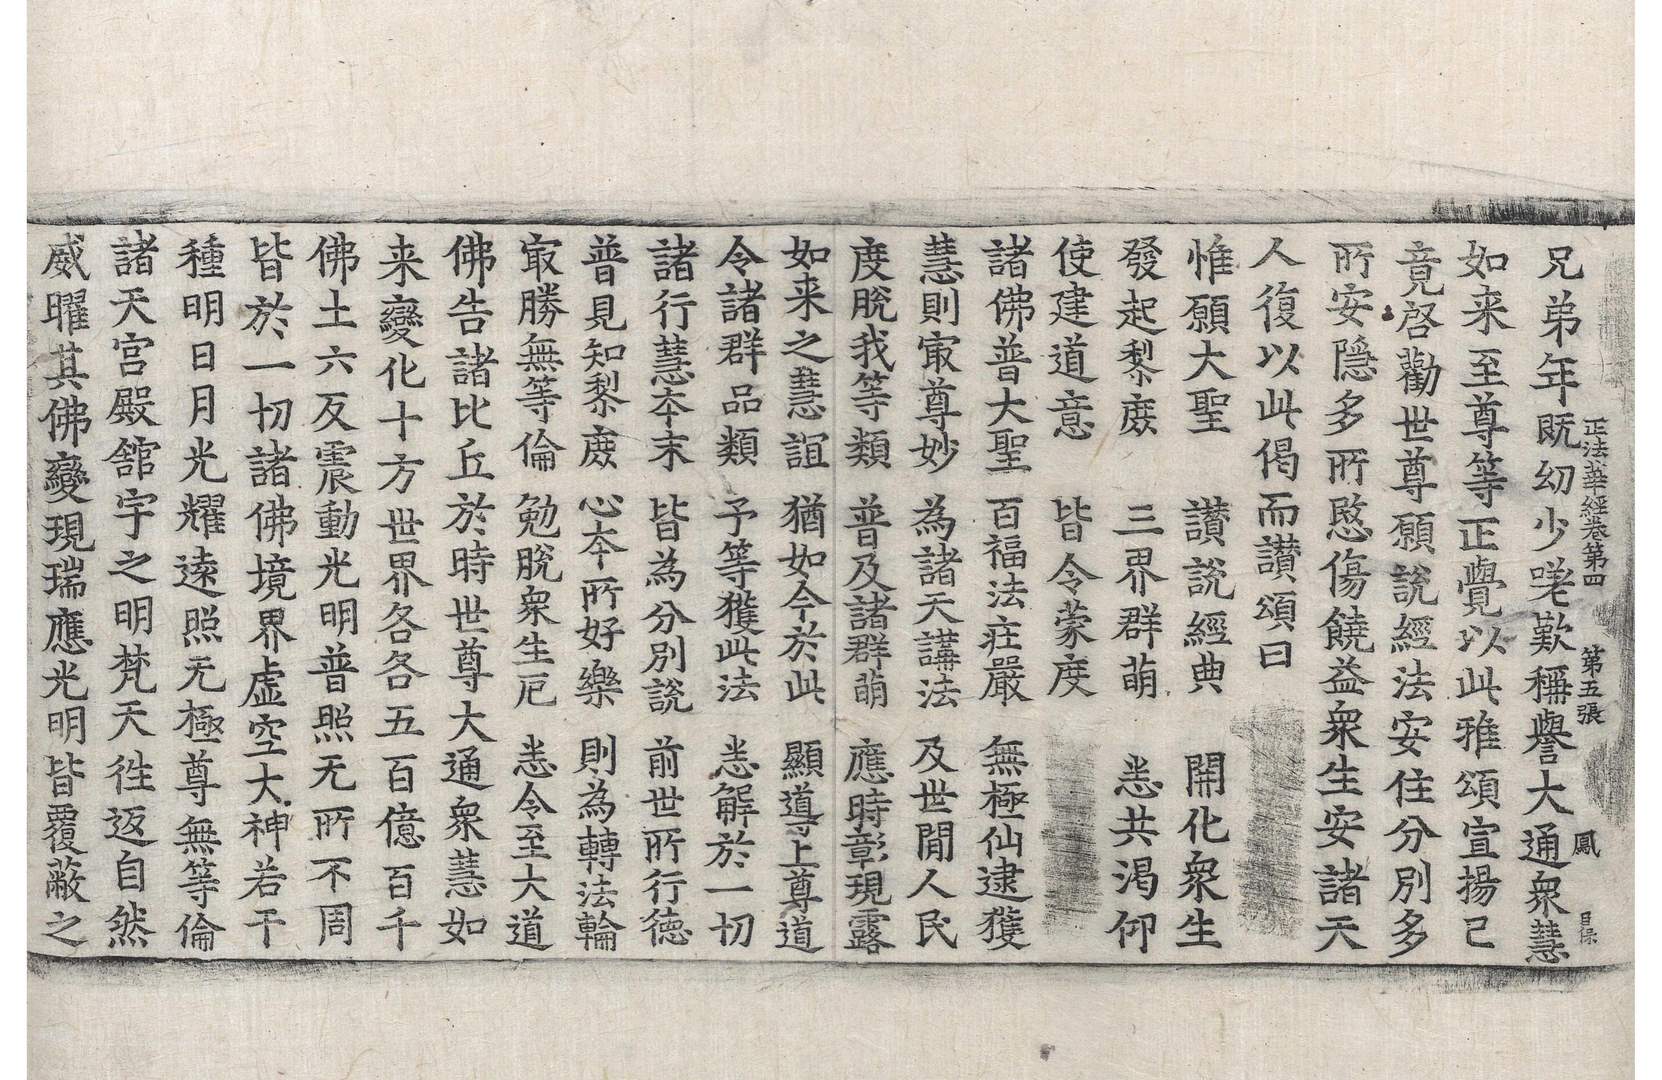 正法華經卷第四 第五張 鳳
兄弟年既幼少咲歎稱譽大通衆慧
如来至尊等正覺以此雅頌宣揚已
竟啓勸世尊願說經法安住分別多
所安隱多所愍傷饒益衆生安諸天
人復以此偈而讃頌曰
惟願大聖 讃說經典 開化衆生
發起黎庻 三界群萌 悉共渴仰
使建道意 皆令蒙度
諸佛普大聖 百福法庄嚴 無極仙逮獲
慧則㝡尊妙 為諸天講法 及世閒人民
度脫我等類 普及諸群萌 應時彰現露
如来之慧誼 猶如今於此 顯導上尊道
令諸群品類 予等獲此法 悉解於一切
諸行慧夲末 皆為分別說 前世所行德
普見知黎庻 心夲所好樂 則為轉法輪
㝡勝無等倫 勉脫衆生厄 悉令至大道
佛告諸比丘於時世尊大通衆慧如
来變化十方世界各各五百億百千
佛土六反震動光明普照无所不周
皆於一切諸佛境界虛空大神若干
種明日月光耀逺照无極尊無等倫
諸天宮殿舘宇之明梵天徃返自然
威曜其佛變現瑞應光明皆覆蔽之